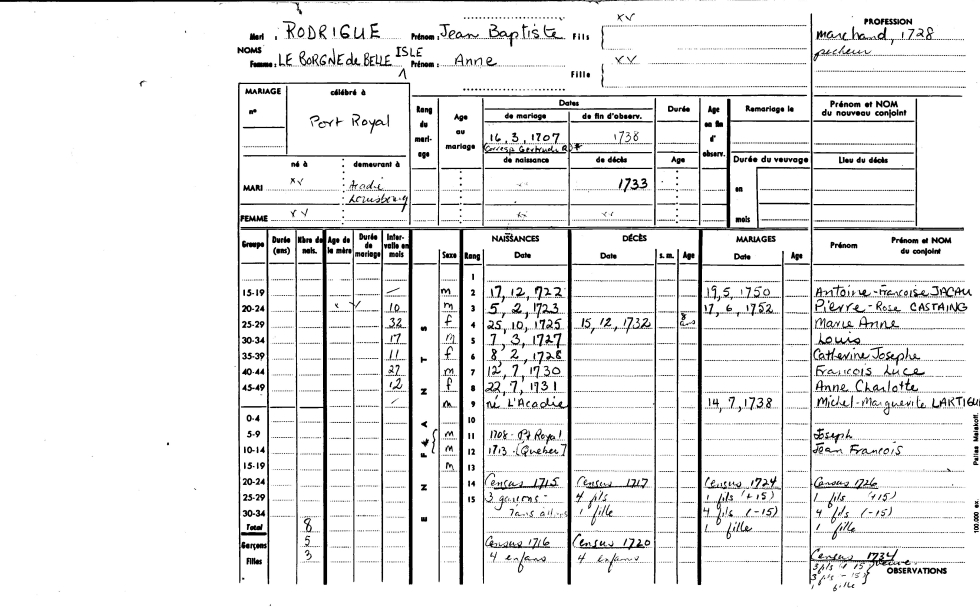 Mari : RODRIGUE Prénom : Jean Baptiste Fils { xv
PROFESSION
marchand, 1728
pecheur
NOMS
Femme : LE BORGNE de BELLE ISLE Prénom : Anne Fille xv
MARIAGE célébré à
n° Port Royal
Rang du mariage
Age au mariage
Dates
de mariage de fin d'observ.
16, 3, 1707 1738
(Corresp Gertrude R) *
de naissance de décès
Durée
Age
Age en fin d'observ.
Remariage le
Durée du veuvage
en
mois
Prénom et NOM du nouveau conjoint
Lieu du décès
né à demeurant à
MARI xv Acadie Louisbourg 1733
FEMME xv xv xv
Groupe Durée (ans) Nbre de nais. Age de la mère Durée de mariage Intervalle en mois Sexe Rang NAISSANCES Date DÉCÈS Date s. m. Age MARIAGES Date Age Prénom Prénom et NOM du conjoint
ENFANTS
1
15-19 m 2 17, 12, 722 19, 5, 1750 Antoine-Francoise JACAU
20-24 x v 10 m 3 5, 2, 1723 17, 6, 1752 Pierre-Rose CASTAING
25-29 32 f 4 25, 10, 1725 15, 12, 1732 8 ans Marie Anne
30-34 17 m 5 7, 3, 1727 Louis
35-39 11 f 6 8, 2, 1728 Catherine Josephe
40-44 27 m 7 12, 7, 1730 Francois Luce
45-49 12 f 8 22, 7, 1731 Anne Charlotte
m 9 né L'Acadie 14, 7, 1738 Michel-Marguerite LARTIGUE
0-4 10
5-9 m 11 1708 - Pt Royal Joseph
10-14 m 12 1713 - [Quebec] Jean Francois
15-19 m 13
20-24 14 Census 1715 Census 1717 Census 1724 Census 1726
25-29 15 3 garcons - 4 fils 1 fils (+15) 1 fils (+15)
30-34 1 fille 4 fils (-15) 4 fils (-15)
Total 8 1 fille 1 fille
Garçons 5 Census 1716 Census 1720
Filles 3 4 enfans 4 enfans Census 1734
3 fils + 15
3 fils - 15
1 fille
veuve
OBSERVATIONS
100.000 ex. Pallas Malakoff.